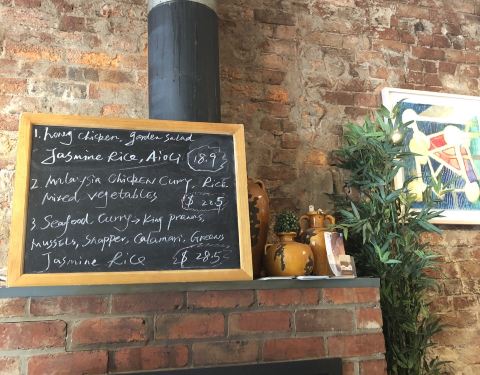 1. honey chicken, garden salad
Jasmine Rice, Aioli 18.9
2. Malaysia Chicken Curry, Rice.
Mixed vegetables $22.5
3 Seafood Curry → King prawns,
Mussels, Snapper, Calamari, Greens
Jasmine Rice $28.5